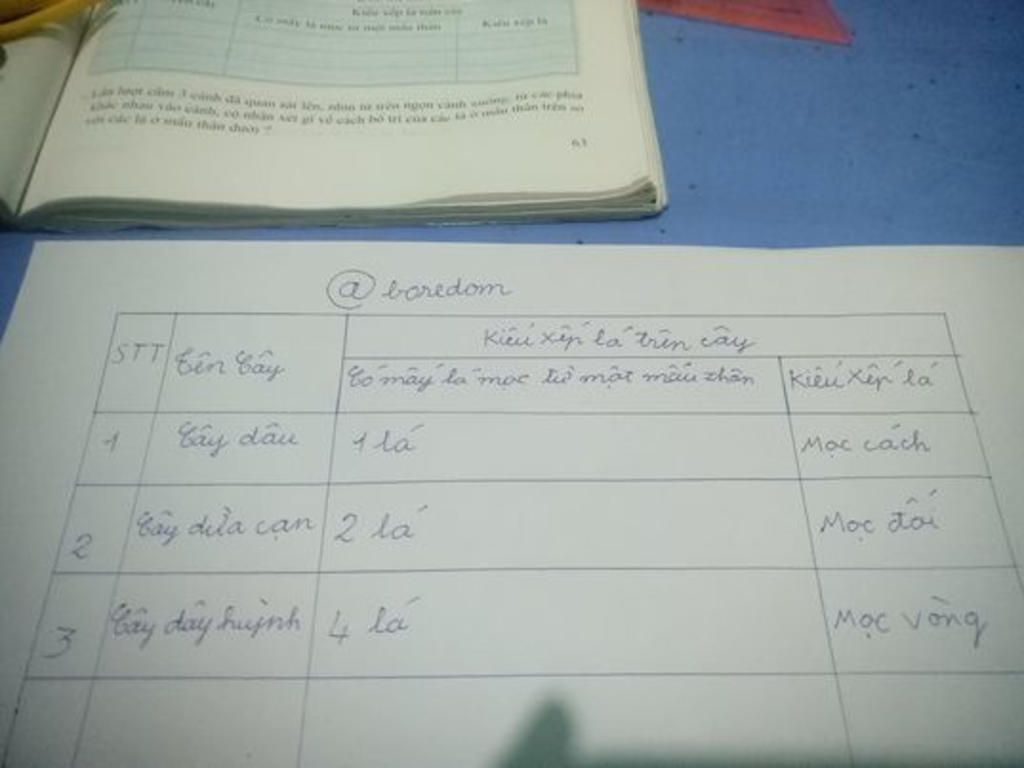 Kiểu xếp lá trên cây
Có mấy lá mọc từ một mấu thân
Kiểu xếp lá
Lần lượt cầm 3 cành đã quan sát lên, nhìn từ trên ngọn cành xuống, từ các phía
khác nhau vào cành, có nhận xét gì về cách bố trí của các lá ở mấu thân trên so
với các lá ở mấu thân dưới ?
63
@ boredom
STT
Tên Cây
Kiểu xếp lá trên cây
Có mấy lá mọc từ một mấu thân
Kiểu xếp lá
1
Cây dâu
1 lá
Mọc cách
2
Cây dừa cạn
2 lá
Mọc đối
3
Cây dây huỳnh
4 lá
Mọc vòng